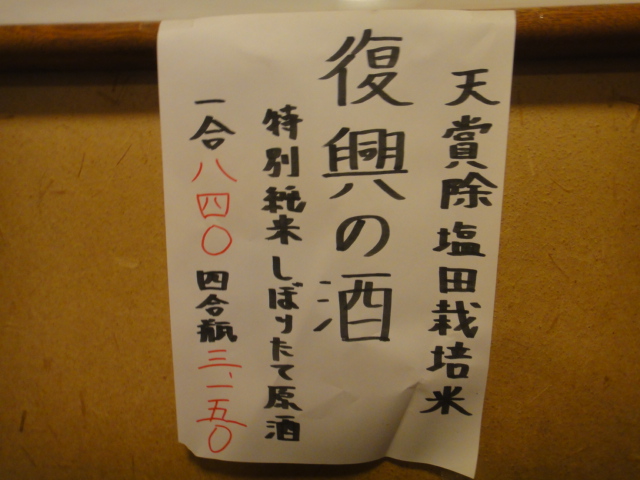 天賞除塩田栽培米
復興の酒
特別純米しぼりたて原酒
一合八四〇 四合瓶三、一五〇